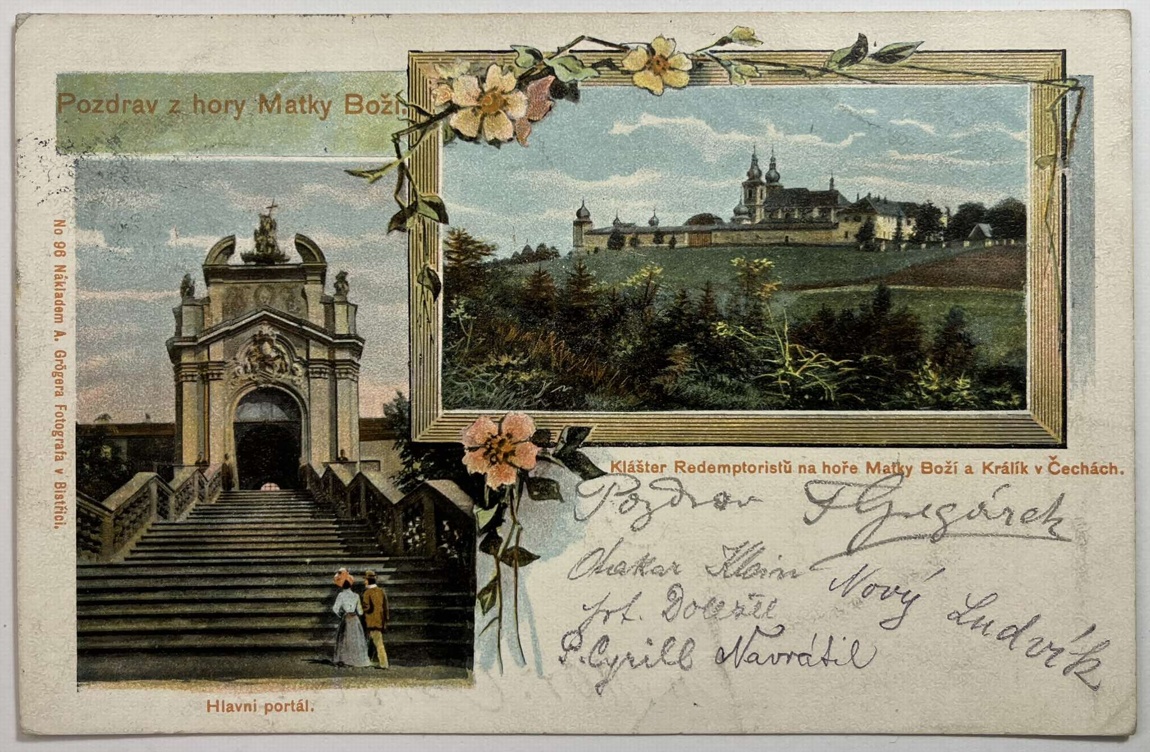 Pozdrav z hory Matky Boží.
No 96 Nákladem A. Grögera Fotografa v Bistřici.
Klášter Redemptoristů na hoře Matky Boží a Králík v Čechách.
Pozdrav
Otakar Klein
Nový Ludvík
frt. Doležel
P. Cyrill Navrátil
Hlavni portál.